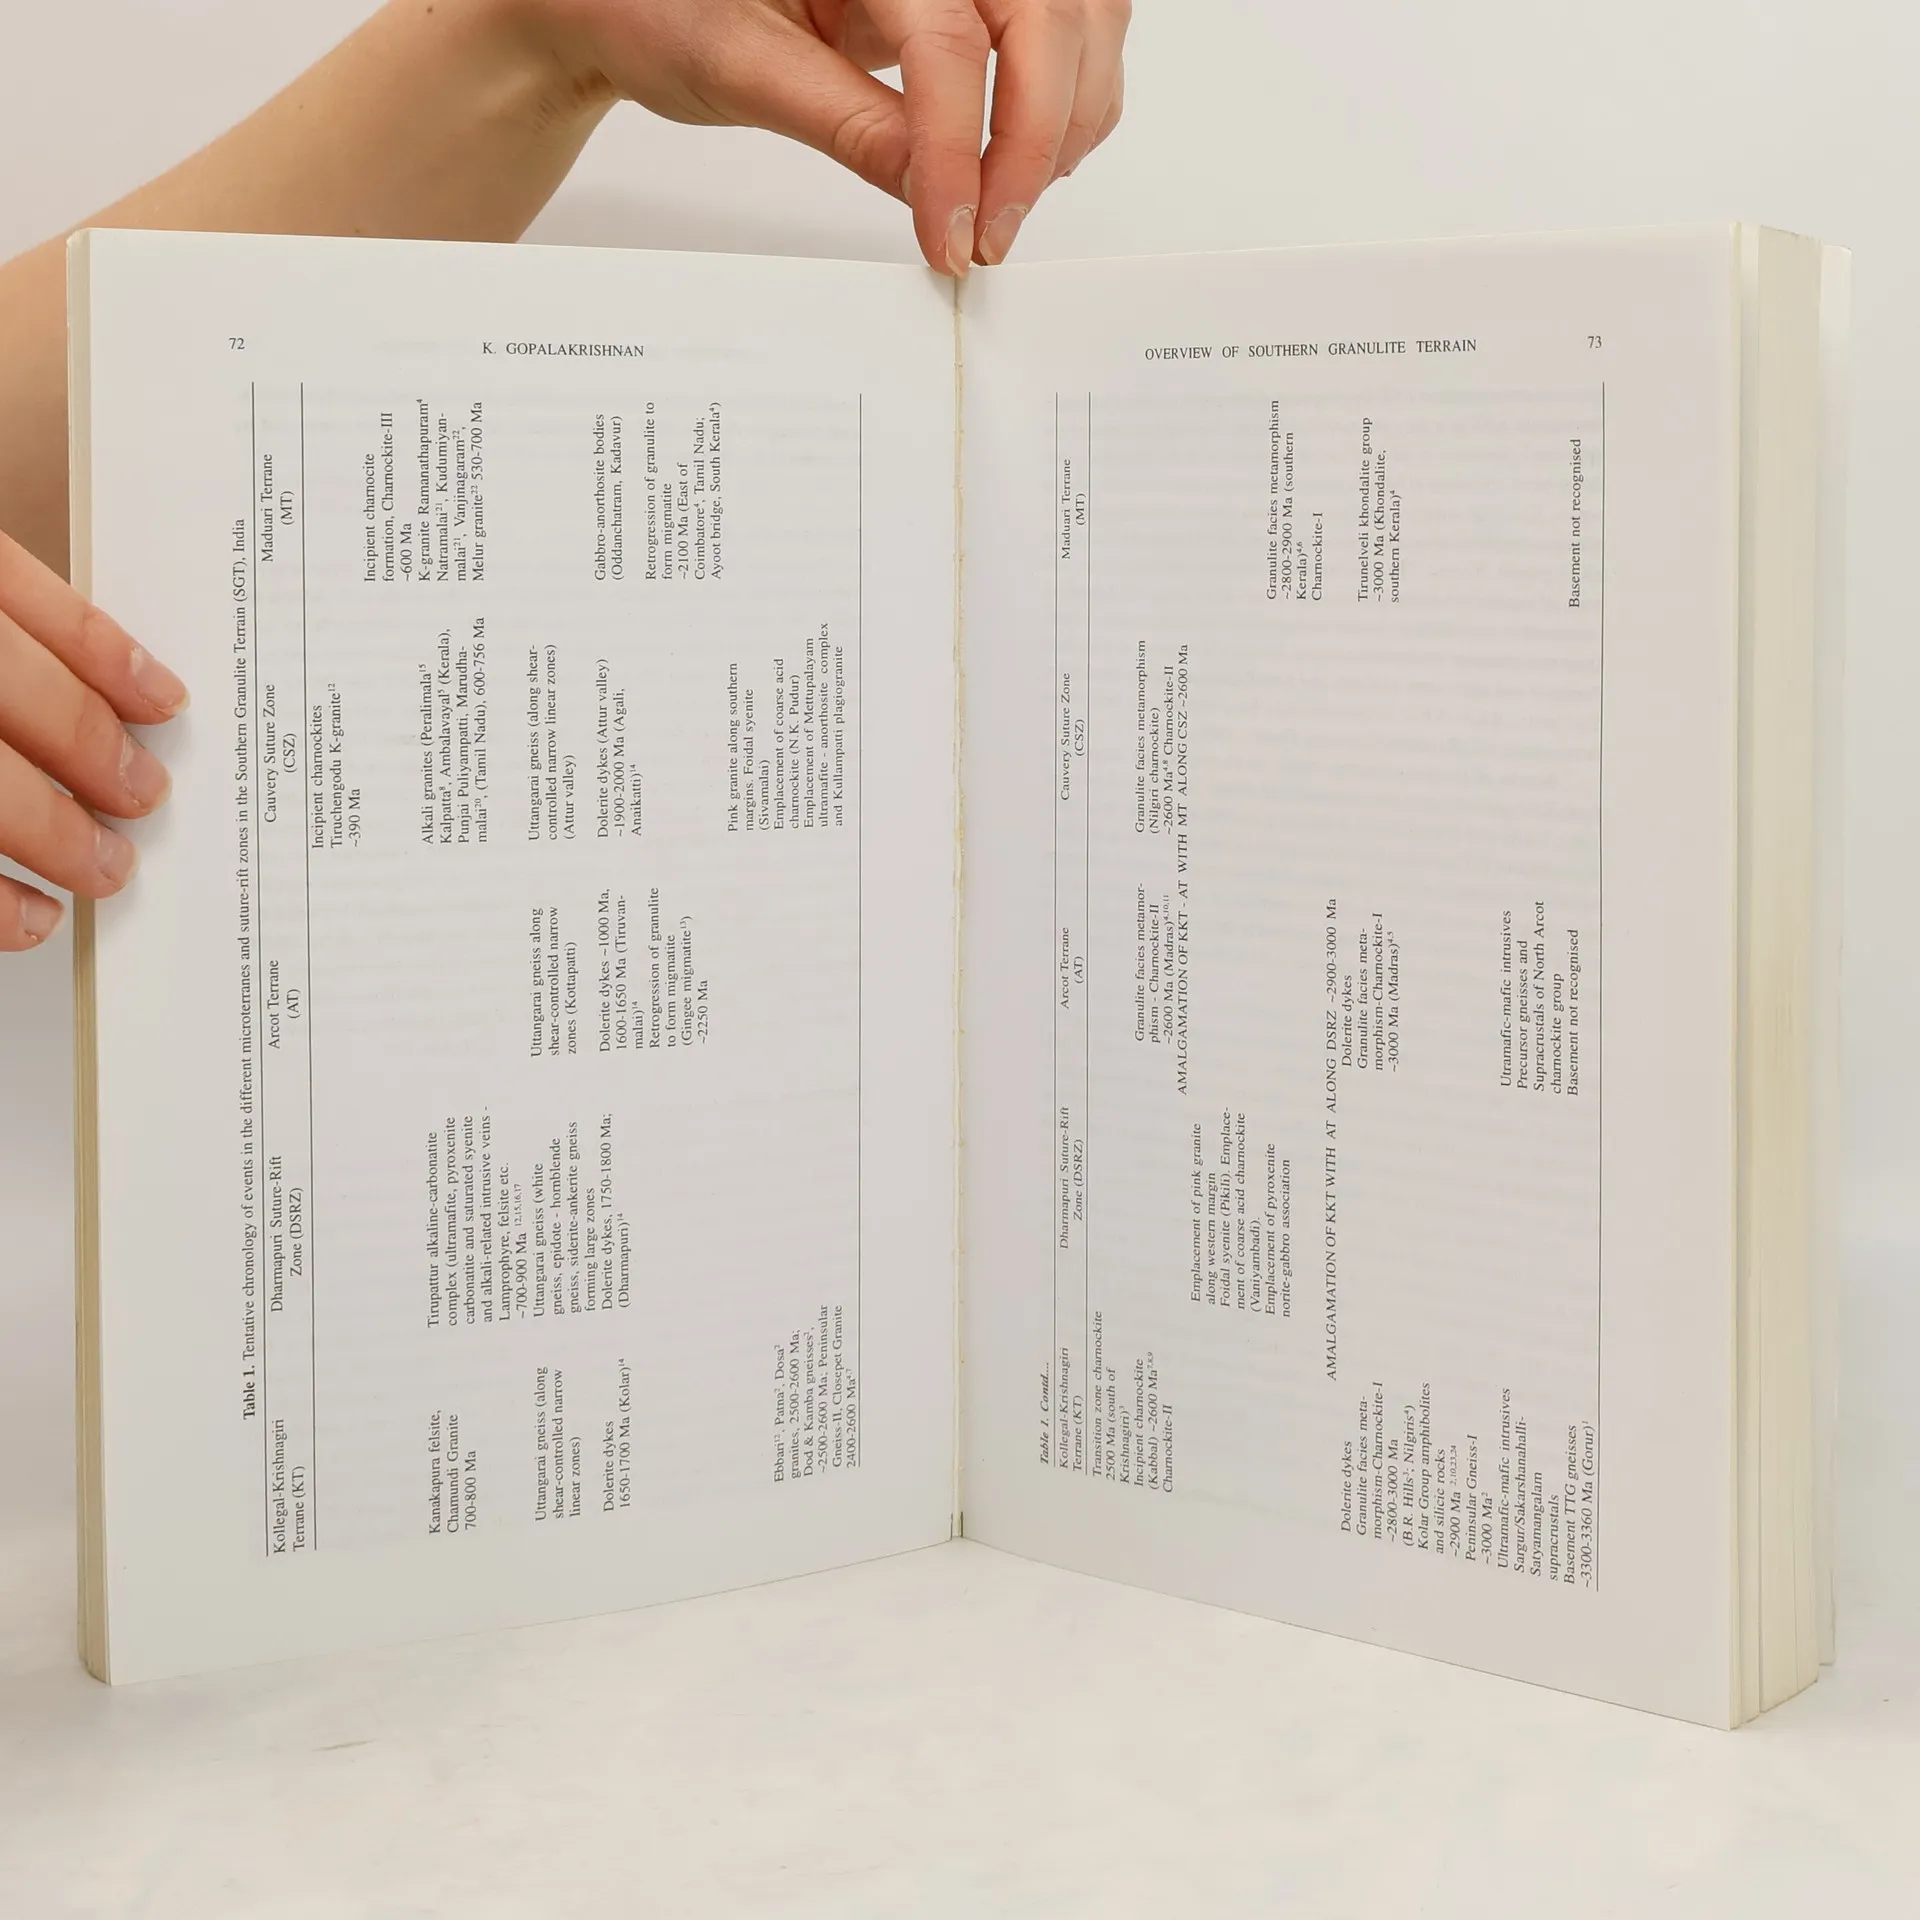 72
K. GOPALAKRISHNAN
Table 1. Tentative chronology of events in the different microterranes and suture-rift zones in the Southern Granulite Terrain (SGT), India
Kollegal-Krishnagiri
Terrane (KT)
Dharmapuri Suture-Rift
Zone (DSRZ)
Arcot Terrane
(AT)
Cauvery Suture Zone
(CSZ)
Maduari Terrane
(MT)
Incipient charnockites
Tiruchengodu K-granite¹²
~390 Ma
Incipient charnocite
formation, Charnockite-III
~600 Ma
Kanakapura felsite,
Chamundi Granite
700-800 Ma
Tirupattur alkaline-carbonatite
complex (ultramafite, pyroxenite
carbonatite and saturated syenite
and alkali-related intrusive veins -
Lamprophyre, felsite etc.
~700-900 Ma 12,15,16,17
Alkali granites (Peralimala¹⁵
Kalpatta⁸, Ambalavayal⁵ (Kerala),
Punjai Puliyampatti, Marudha-
malai²⁰, (Tamil Nadu), 600-756 Ma
K-granite Ramanathapuram⁴
Natramalai²¹, Kudumiyan-
malai²¹, Vanjinagaram²²,
Melur granite²² 530-700 Ma
Uttangarai gneiss (along
shear-controlled narrow
linear zones)
Uttangarai gneiss (white
gneiss, epidote - hornblende
gneiss, siderite-ankerite gneiss
forming large zones
Uttangarai gneiss along
shear-controlled narrow
zones (Kottapatti)
Uttangarai gneiss (along shear-
controlled narrow linear zones)
(Attur valley)
Dolerite dykes
1650-1700 Ma (Kolar)¹⁴
Dolerite dykes, 1750-1800 Ma;
(Dharmapuri)¹⁴
Dolerite dykes ~1000 Ma,
1600-1650 Ma (Tiruvan-
malai)¹⁴
Dolerite dykes (Attur valley)
~1900-2000 Ma (Agali,
Anaikatti)¹⁴
Gabbro-anorthosite bodies
(Oddanchatram, Kadavur)
Retrogression of granulite
to form migmatite
(Gingee migmatite¹³)
~2250 Ma
Retrogression of granulite to
form migmatite
~2100 Ma (East of
Coimbatore⁴, Tamil Nadu;
Ayoor bridge, South Kerala⁴)
Pink granite along southern
margins. Foidal syenite
(Sivamalai)
Emplacement of coarse acid
charnockite (N.K. Pudur)
Emplacement of Mettupalayam
ultramafite - anorthosite complex
and Kullampatti plagiogranite
Ebbari¹², Patna², Dosa²
granites, 2500-2600 Ma;
Dod & Kamba gneisses²,
~2500-2600 Ma; Peninsular
Gneiss-II, Closepet Granite
2400-2600 Ma⁶,⁷
OVERVIEW OF SOUTHERN GRANULITE TERRAIN
73
Table 1. Contd....
Kollegal-Krishnagiri
Terrane (KT)
Dharmapuri Suture-Rift
Zone (DSRZ)
Arcot Terrane
(AT)
Cauvery Suture Zone
(CSZ)
Maduari Terrane
(MT)
Transition zone charnockite
2500 Ma (south of
Krishnagiri)³
Incipient charnockite
(Kabbal) ~2600 Ma⁷,⁸,⁹
Charnockite-II
Granulite facies metamor-
phism - Charnockite-II
~2600 Ma (Madras)⁴,¹⁰,¹¹
Granulite facies metamorphism
(Nilgiri charnockite)
~2600 Ma⁴,⁸ Charnockite-II
AMALGAMATION OF KKT - AT WITH MT ALONG CSZ ~2600 Ma
Emplacement of pink granite
along western margin
Foidal syenite (Pikili). Emplace-
ment of coarse acid charnockite
(Vaniyambadi).
Emplacement of pyroxenite
norite-gabbro association
Granulite facies metamorphism
~2800-2900 Ma (southern
Kerala)⁴,⁶
Charnockite-I
AMALGAMATION OF KKT WITH AT ALONG DSRZ ~2900-3000 Ma
Dolerite dykes
Granulite facies meta-
morphism-Charnockite-I
~2800-3000 Ma
(B.R. Hills³,⁵; Nilgiris⁴)
Dolerite dykes
Granulite facies meta-
morphism-Charnockite-I
~3000 Ma (Madras)⁴,⁵
Tirunelveli khondalite group
~3000 Ma (Khondalite,
southern Kerala)⁴
Kolar Group amphibolites
and silicic rocks
~2900 Ma 2,10,23,24
Peninsular Gneiss-I
~3000 Ma²
Ultramafic-mafic intrusives
Sargur/Sakarshanahalli-
Satyamangalam
supracrustals
Basement TTG gneisses
~3300-3360 Ma (Gorur)¹
Utramafic-mafic intrusives
Precursor gneisses and
Supracrustals of North Arcot
charnockite group
Basement not recognised
Basement not recognised